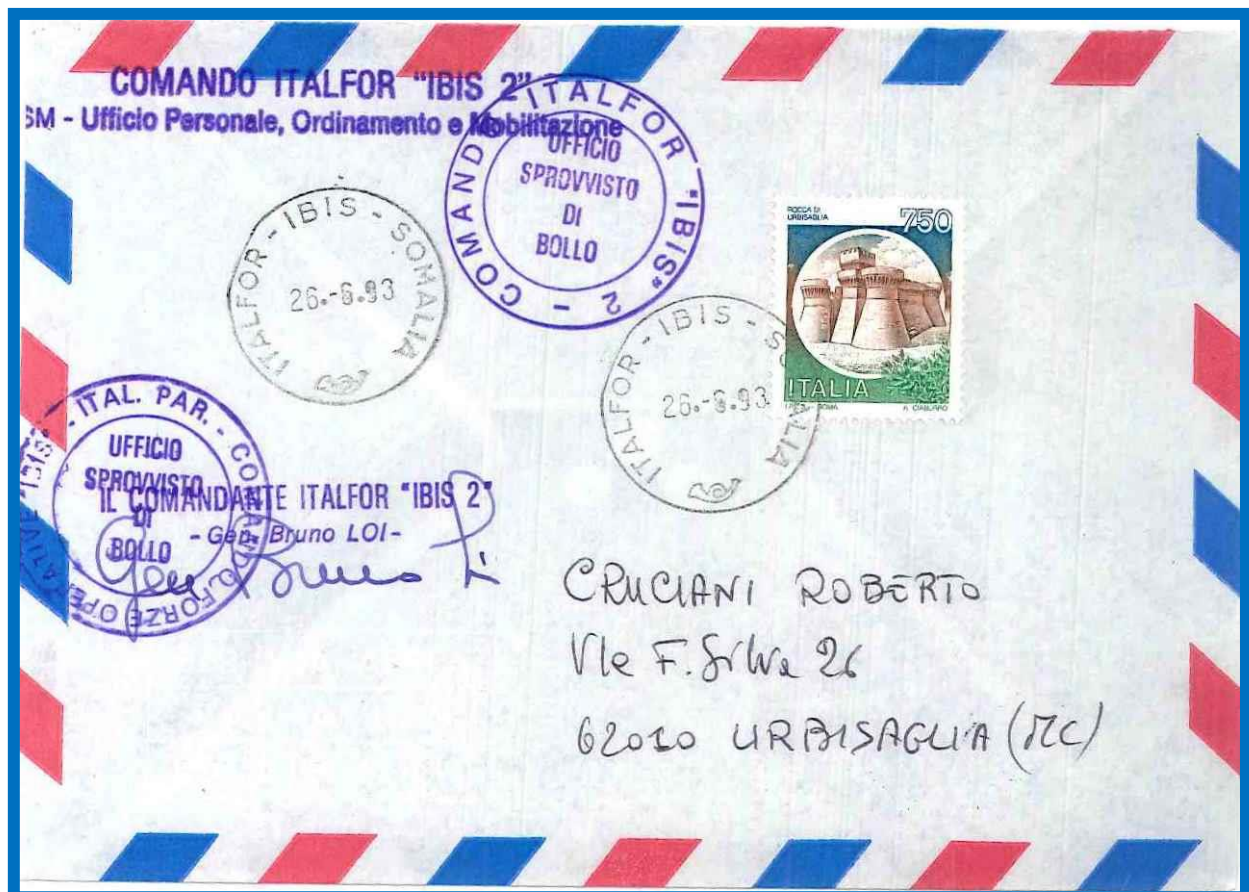 COMANDO ITALFOR "IBIS 2"
SM - Ufficio Personale, Ordinamento e Mobilitazione
COMANDO ITALFOR "IBIS" 2 -
UFFICIO
SPROVVISTO
DI
BOLLO
ROCCA DI
URBISAGLIA
750
ITALIA
ROMA
ITALFOR - IBIS - SOMALIA
26.-8.93
ITALFOR - IBIS - SOMALIA
26.-8.93
ITAL. PAR. - COMANDO FORZE OPERATIVE "IBIS" -
UFFICIO
SPROVVISTO
DI
BOLLO
IL COMANDANTE ITALFOR "IBIS 2"
- Gen. Bruno LOI -
Gen Bruno
CRUCIANI ROBERTO
Vle F. Silva 26
62010 URBISAGLIA (MC)